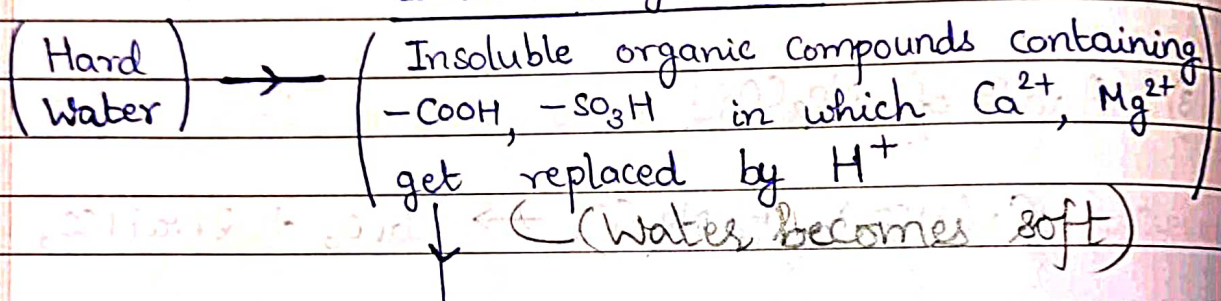 Hard Water → Insoluble organic compounds containing
-COOH, -SO₃H in which Ca²⁺, Mg²⁺
get replaced by H⁺
(Water becomes soft)